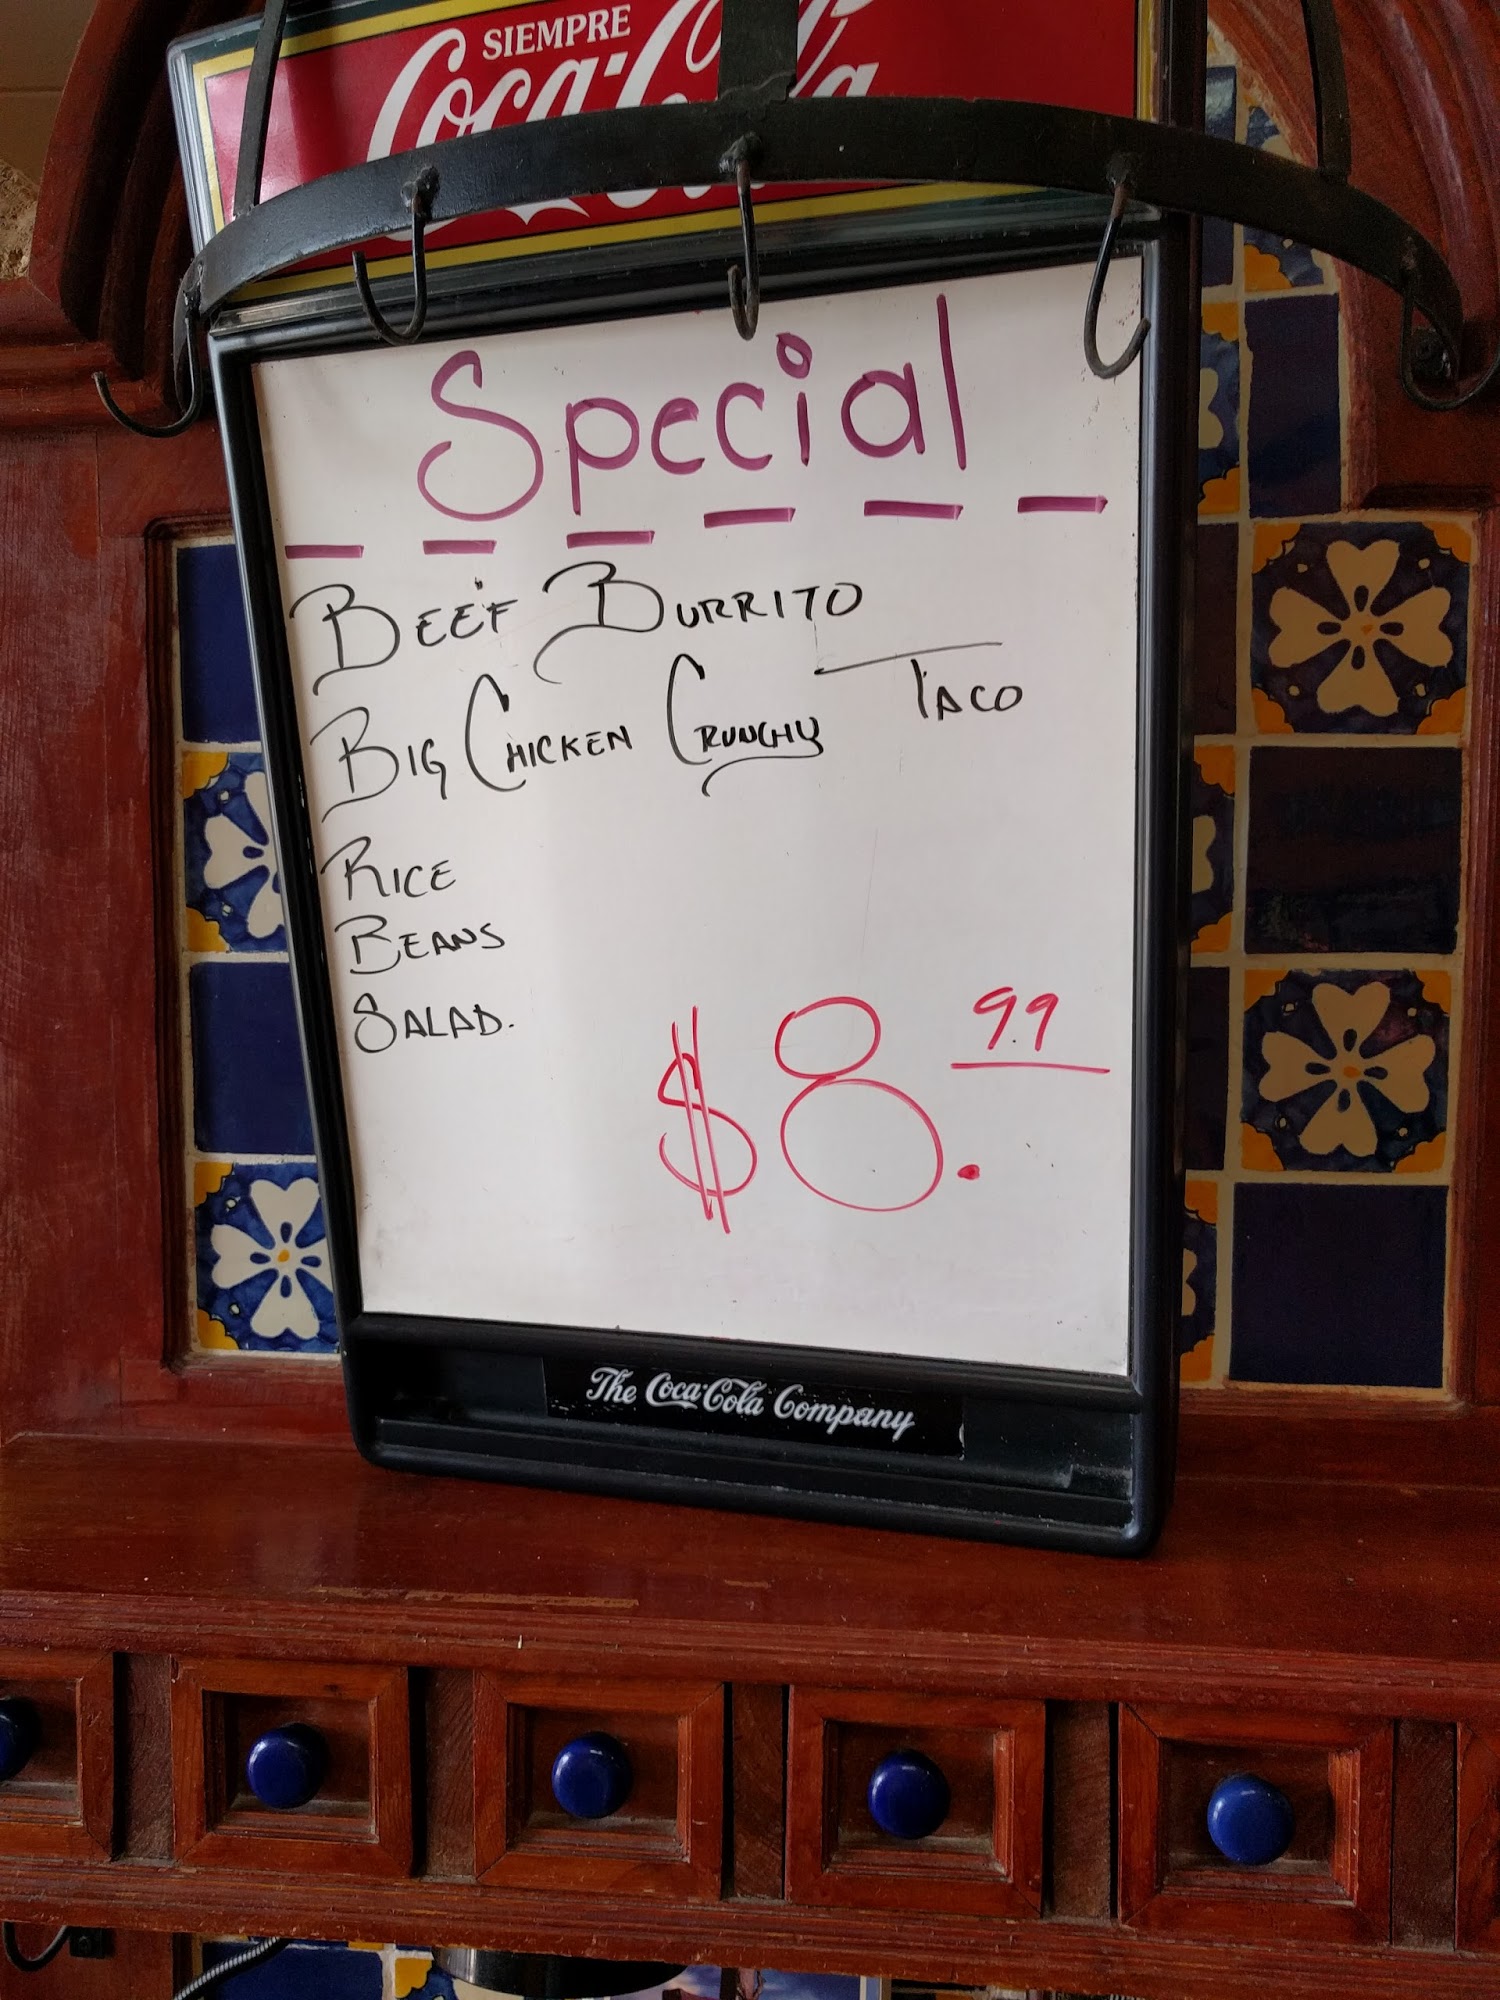 SIEMPRE
Coca-Cola
Special
BEEF BURRITO
BIG CHICKEN CRUNCHY TACO
RICE
BEANS
SALAD.
$8.99
The Coca-Cola Company